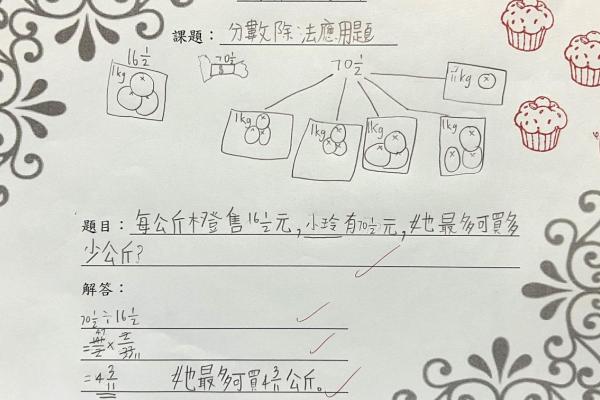 課題：分數除法應用題
16½ 70½ 70½
1kg
1kg 1kg 1kg 1kg
題目：每公斤橙售16½元，小玲有70½元，她最多可買多
少公斤？
解答：
70½÷16½
=141/2×2/33 47 11
=4 3/11 她最多可買4 3/11公斤。